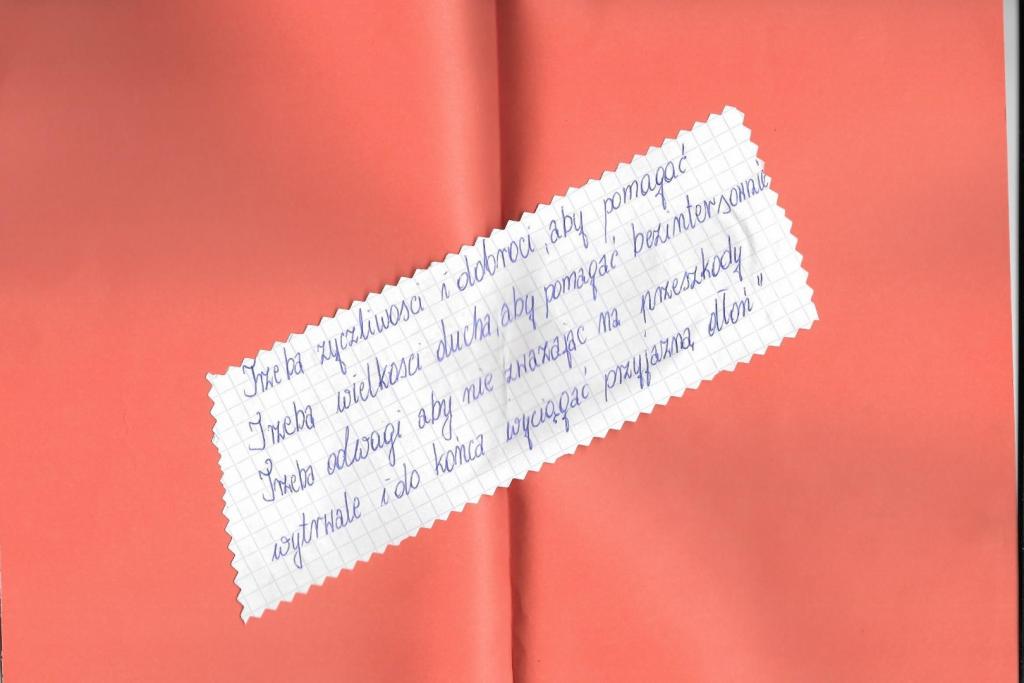 Trzeba życzliwości i dobroci, aby pomagać
Trzeba wielkosci ducha, aby pomagać bezintersownie
Trzeba odwagi aby nie zważając na przeszkody
wytrwale i do końca wyciągać przyjazną dłoń"